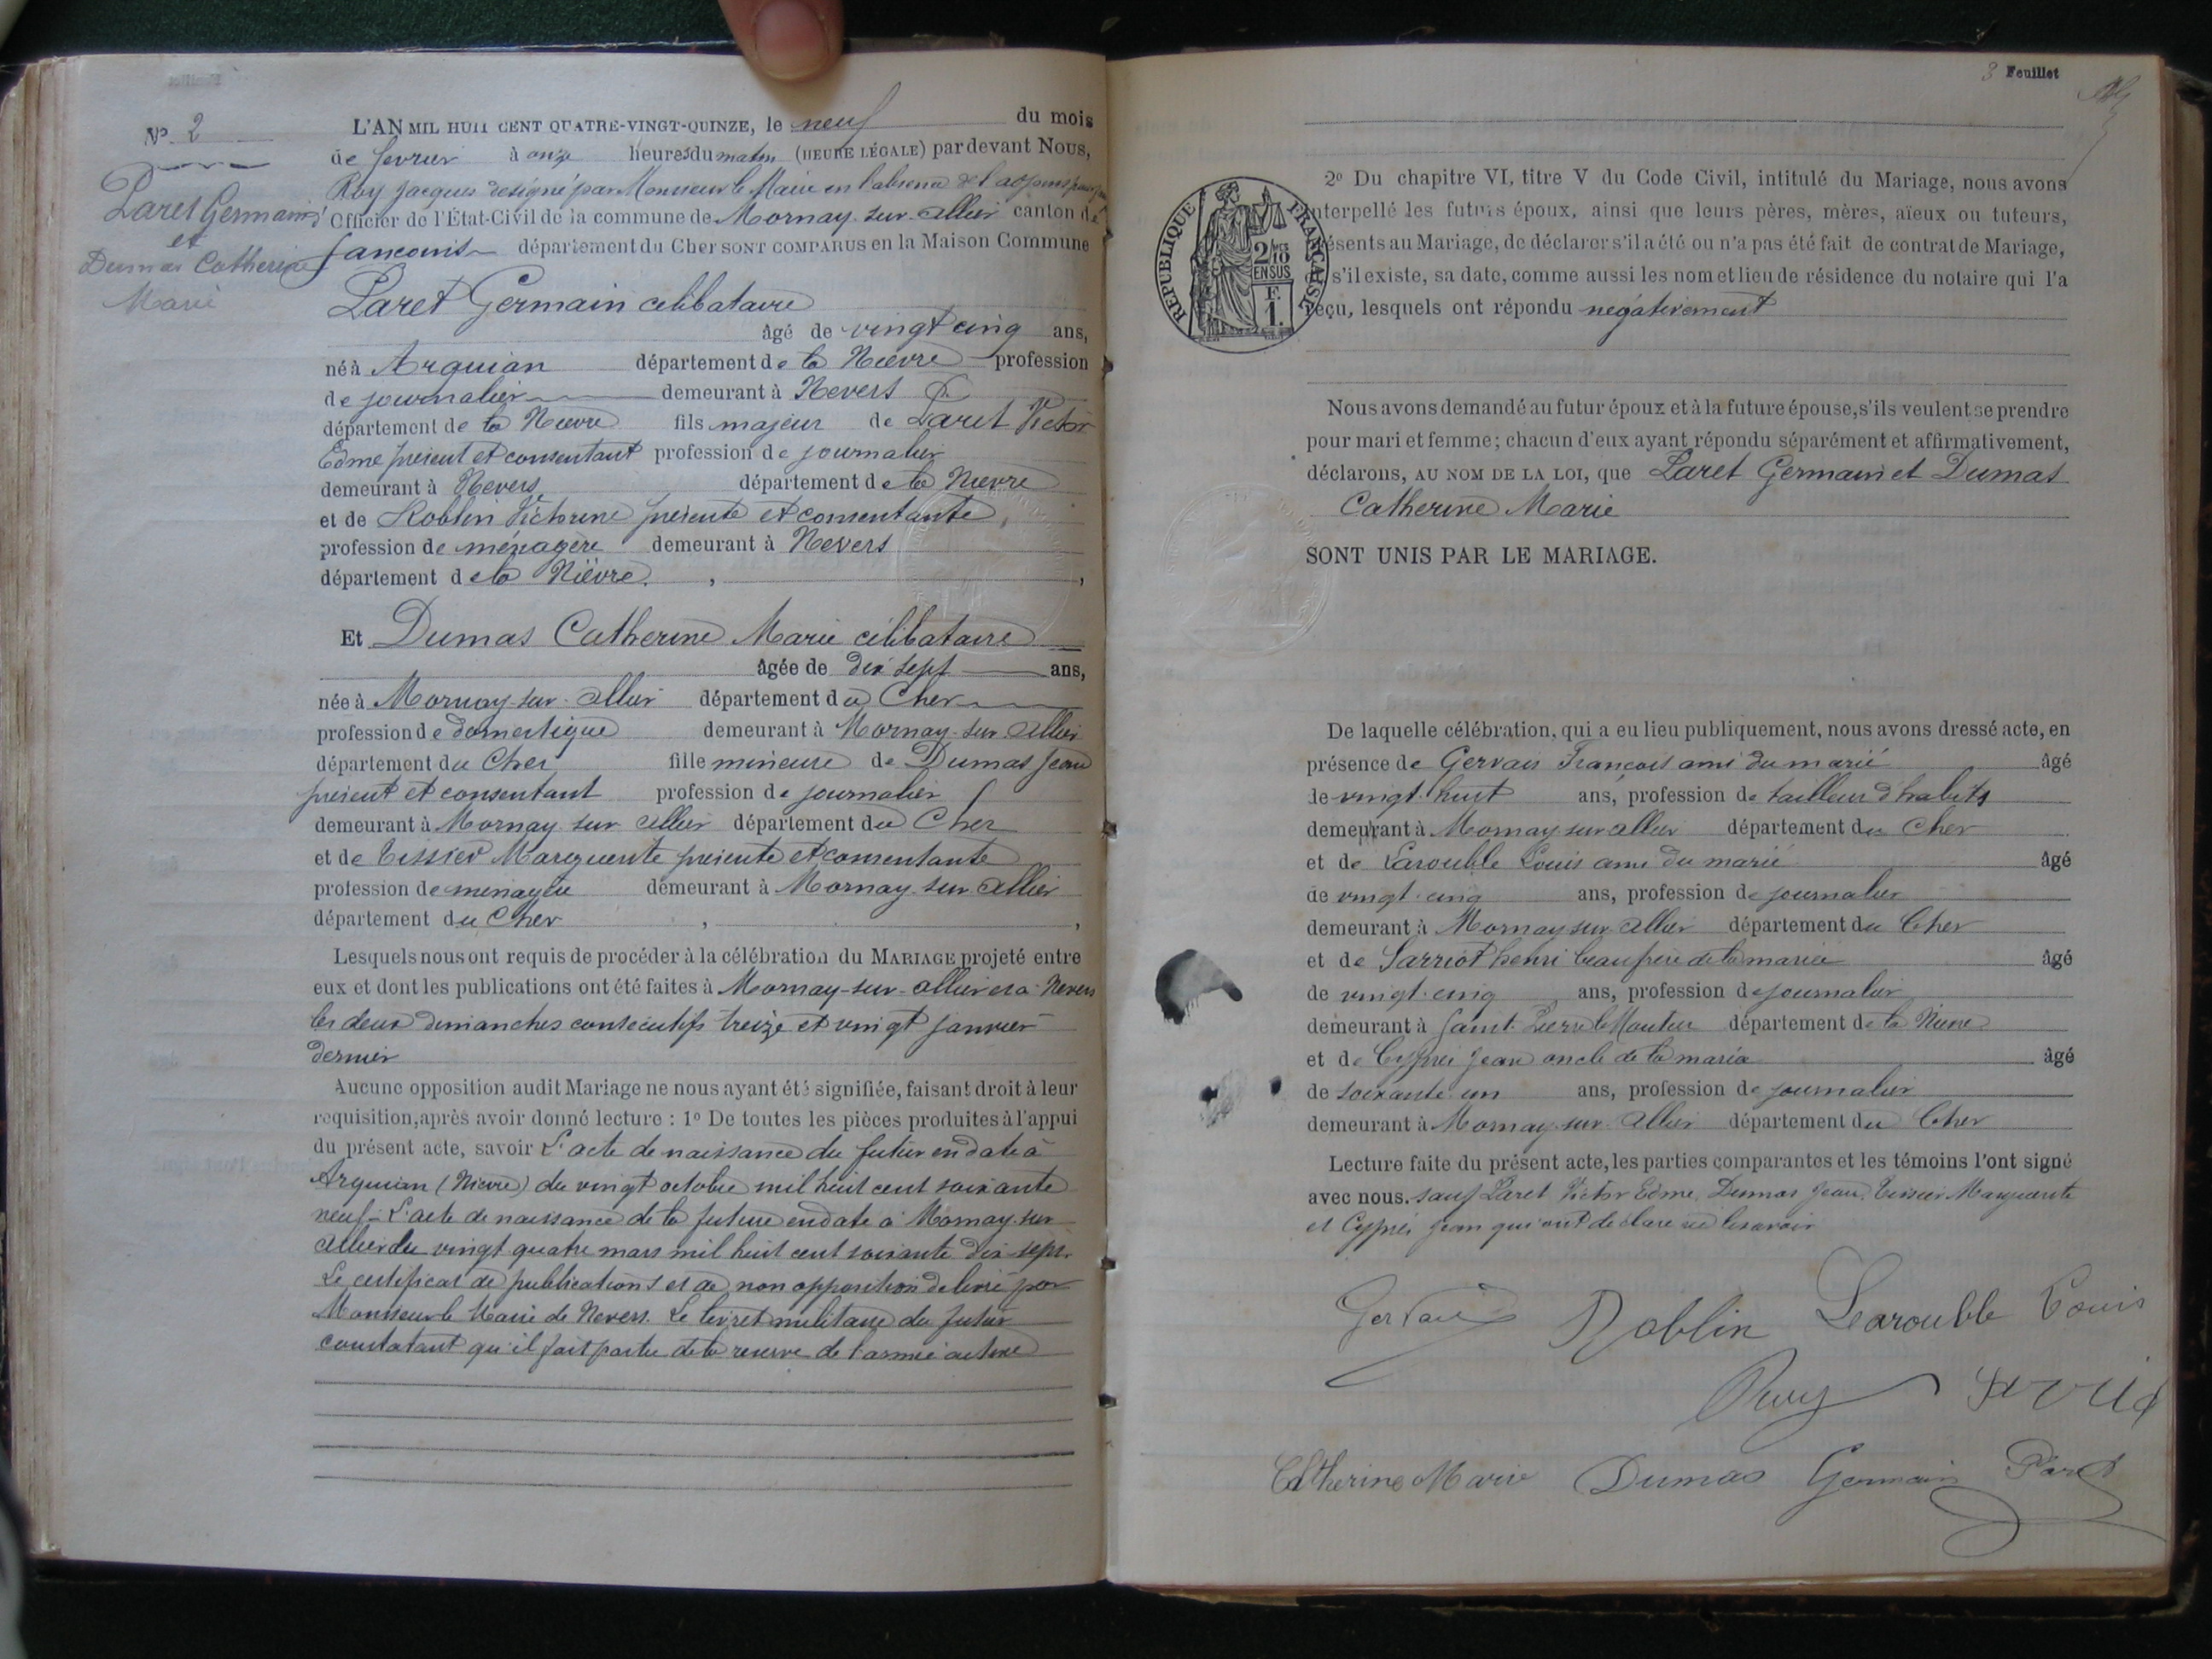 Nº 2
Paret Germain
et
Dumas Catherine
Marie
L'AN MIL HUIT CENT QUATRE-VINGT-QUINZE, le neuf du mois
de fevrier à onze heures du matin (HEURE LÉGALE) par devant Nous,
Roy Jacques designé par Monsieur le Maire en l'absence de l'adjoint
Officier de l'État-Civil de la commune de Mornay-sur-Allier canton de
Sancoins département du Cher SONT COMPARUS en la Maison Commune
Paret Germain celibataire
âgé de vingt cinq ans,
né à Arquian département de la Nièvre profession
de journalier demeurant à Nevers
département de la Nièvre fils majeur de Paret Victor
Edme présent et consentant profession de journalier
demeurant à Nevers département de la Nièvre
et de Roblin Victorine présente et consentante,
profession de ménagère demeurant à Nevers
département de la Nièvre. , ,
Et Dumas Catherine Marie célibataire
âgée de dix sept ans,
née à Mornay-sur-Allier département du Cher
profession de domestique demeurant à Mornay-sur-Allier
département du Cher fille mineure de Dumas Jean
présent et consentant profession de journalier
demeurant à Mornay sur Allier département du Cher
et de Tissier Marguerite présente et consentante
profession de menagère demeurant à Mornay-sur-Allier
département du Cher , ,
Lesquels nous ont requis de procéder à la célébration du MARIAGE projeté entre
eux et dont les publications ont été faites à Mornay-sur-Allier et à Nevers
les deux dimanches consécutifs treize et vingt janvier
dernier
Aucune opposition audit Mariage ne nous ayant été signifiée, faisant droit à leur
requisition, après avoir donné lecture : 1º De toutes les pièces produites à l'appui
du présent acte, savoir L'acte de naissance du futur en date à
Arquian (Nièvre) du vingt octobre mil huit cent soixante
neuf - L'acte de naissance de la future en date à Mornay-sur
Allier du vingt quatre mars mil huit cent soixante dix-sept.
Le certificat de publications et de non opposition delivré par
Monsieur le Maire de Nevers. Le livret militaire du futur
constatant qu'il fait partie de la reserve de l'armée active
3 Feuillet
REPUBLIQUE FRANÇAISE
2/10
EN SUS
F.
1.
2º Du chapitre VI, titre V du Code Civil, intitulé du Mariage, nous avons
interpellé les futurs époux, ainsi que leurs pères, mères, aïeux ou tuteurs,
présents au Mariage, de déclarer s'il a été ou n'a pas été fait de contrat de Mariage,
s'il existe, sa date, comme aussi les nom et lieu de résidence du notaire qui l'a
reçu, lesquels ont répondu négativement
Nous avons demandé au futur époux et à la future épouse, s'ils veulent se prendre
pour mari et femme; chacun d'eux ayant répondu séparément et affirmativement,
déclarons, AU NOM DE LA LOI, que Paret Germain et Dumas
Catherine Marie
SONT UNIS PAR LE MARIAGE.
De laquelle célébration, qui a eu lieu publiquement, nous avons dressé acte, en
présence de Gervais François ami du marié âgé
de vingt-huit ans, profession de tailleur d'habits
demeurant à Mornay sur Allier département du Cher
et de Larouble Louis ami du marié âgé
de vingt-cinq ans, profession de journalier
demeurant à Mornay sur Allier département du Cher
et de Sarriot henri beau frère de la mariée âgé
de vingt-cinq ans, profession de journalier
demeurant à Saint-Pierre le Moutier département de la Nièvre
et de Cyprès Jean oncle de la mariée âgé
de soixante un ans, profession de journalier
demeurant à Mornay-sur-Allier département du Cher
Lecture faite du présent acte, les parties comparantes et les témoins l'ont signé
avec nous. sauf Paret Victor Edme, Dumas Jean, Tissier Marguerite
et Cyprès Jean qui ont déclaré ne le savoir
Gervais Roblin Larouble Louis
Roy
Catherine Marie Dumas Germain Paret